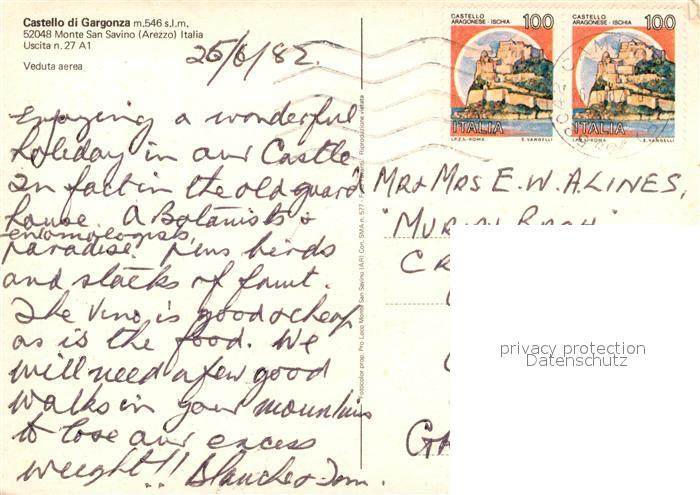 Castello di Gargonza m.546 s.l.m.
52048 Monte San Savino (Arezzo) Italia
Uscita n. 27 A1
Veduta aerea
25/6/82.
Enjoying a wonderful
holiday in our Castle
In fact in the old guard
house. A Botanists &
entomologists
paradise. plus birds
and stacks of faunt.
The Vino is good & cheap
as is the food. We
will need a few good
walks in your mountains
to lose our excess
weight!! Blanche & Tom.
Fotocolor prop. Pro Loco Monte San Savino (AR) Con. SMA n. 577 - Riproduzione vietata
CASTELLO
ARAGONESE - ISCHIA
100
ITALIA
I.P.Z.S. - ROMA
E. VANGELLI
CASTELLO
ARAGONESE - ISCHIA
100
ITALIA
I.P.Z.S. - ROMA
E. VANGELLI
MR & MRS E. W. A. LINES,
privacy protection
Datenschutz